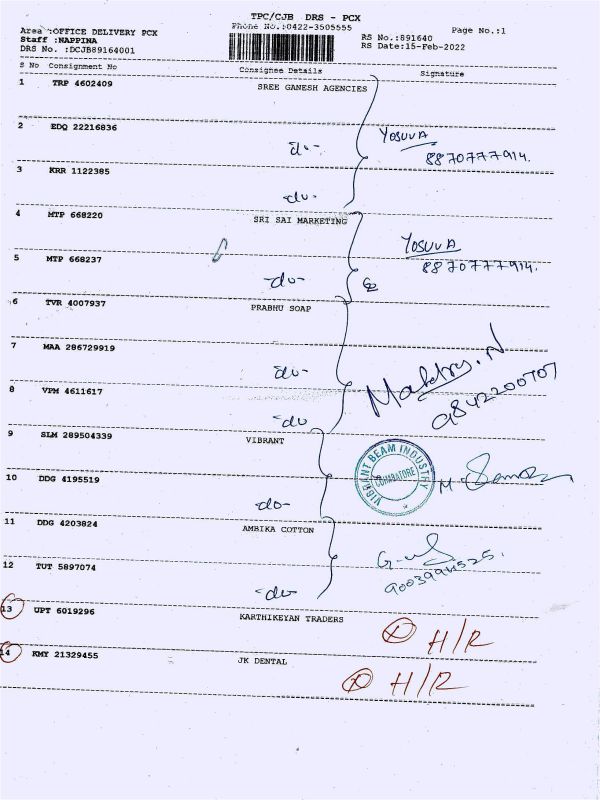 TPC/CJB DRS - PCX
Area :OFFICE DELIVERY PCX
Phone No.:0422-3505555
Page No.:1
Staff :NAPPINA
RS No.:891640
DRS No. :DCJB89164001
RS Date:15-Feb-2022
S No Consignment No Consignee Details Signature
1 TRP 4602409 SREE GANESH AGENCIES
2 EDQ 22216836 -do-
YOSUVA
8870777914.
3 KRR 1122385 -do-
4 MTP 668220 SRI SAI MARKETING
YOSUVA
8870777914.
5 MTP 668237 -do-
6 TVR 4007937 PRABHU SOAP
7 MAA 286729919 -do-
8 VPM 4611617 -do-
9842200707
9 SLM 289504339 VIBRANT
VIBRANT BEAM INDUSTRY
COIMBATORE
10 DDG 4195519 -do-
11 DDG 4203824 AMBIKA COTTON
12 TUT 5897074 -do-
13 UPT 6019296 KARTHIKEYAN TRADERS
H/R
14 KMY 21329455 JK DENTAL
H/R